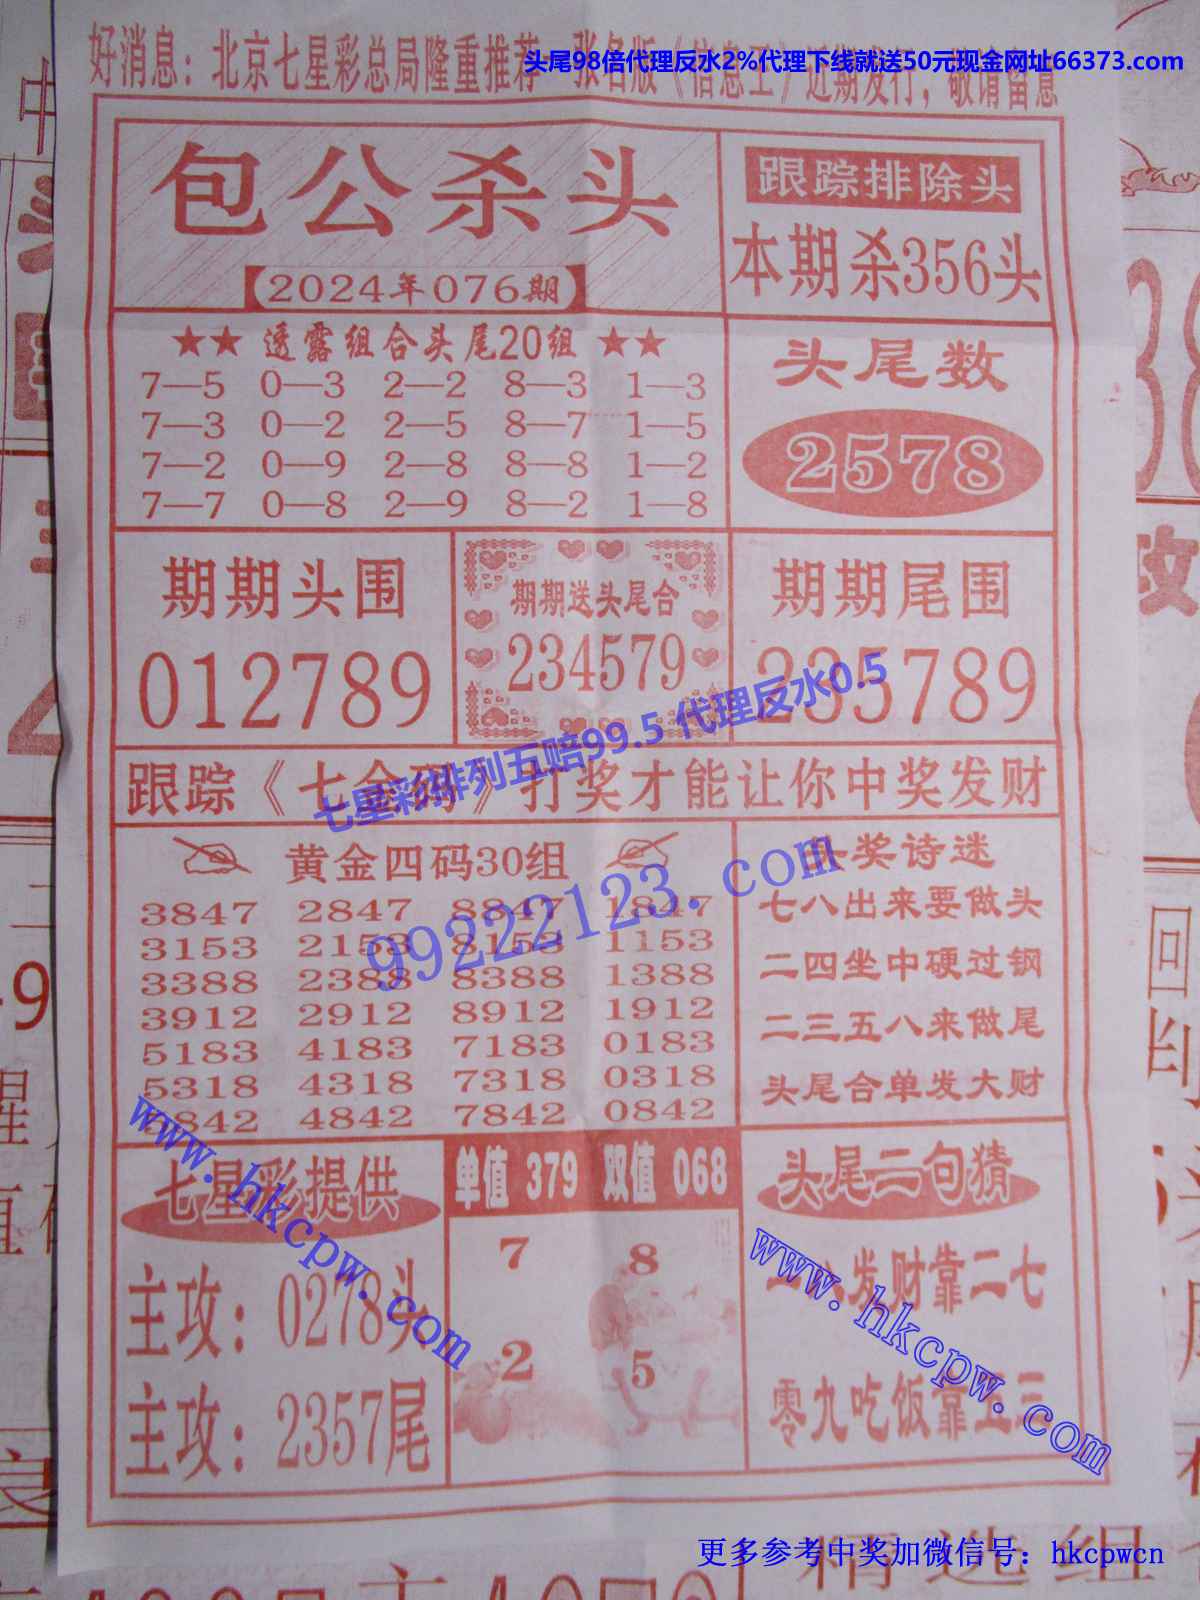 好消息：北京七星彩总局隆重推荐
近期发行，敬请留意
头尾98倍代理反水2%代理下线就送50元现金网址66373.com
包公杀头
2024年076期
跟踪排除头
本期杀356头
★★ 透露组合头尾20组 ★★
7—5 0—3 2—2 8—3 1—3
7—3 0—2 2—5 8—7 1—5
7—2 0—9 2—8 8—8 1—2
7—7 0—8 2—9 8—2 1—8
头尾数
2578
期期头围
012789
期期送头尾合
234579
期期尾围
235789
七星彩排列五赔99.5 代理反水0.5
跟踪《七金码》打奖才能让你中奖发财
99222123.com
黄金四码30组
3847 2847 8847 1847
3153 2153 8153 1153
3388 2388 8388 1388
3912 2912 8912 1912
5183 4183 7183 0183
5318 4318 7318 0318
5842 4842 7842 0842
头奖诗迷
七八出来要做头
二四坐中硬过钢
二三五八来做尾
头尾合单发大财
七星彩提供
主攻：0278头
主攻：2357尾
单值 379 双值 068
7 8
2 5
头尾二句猜
发财靠二七
零九吃饭靠五三
www.hkcpw.com
www.hkcpw.com
更多参考中奖加微信号：hkcpwcn
精选组